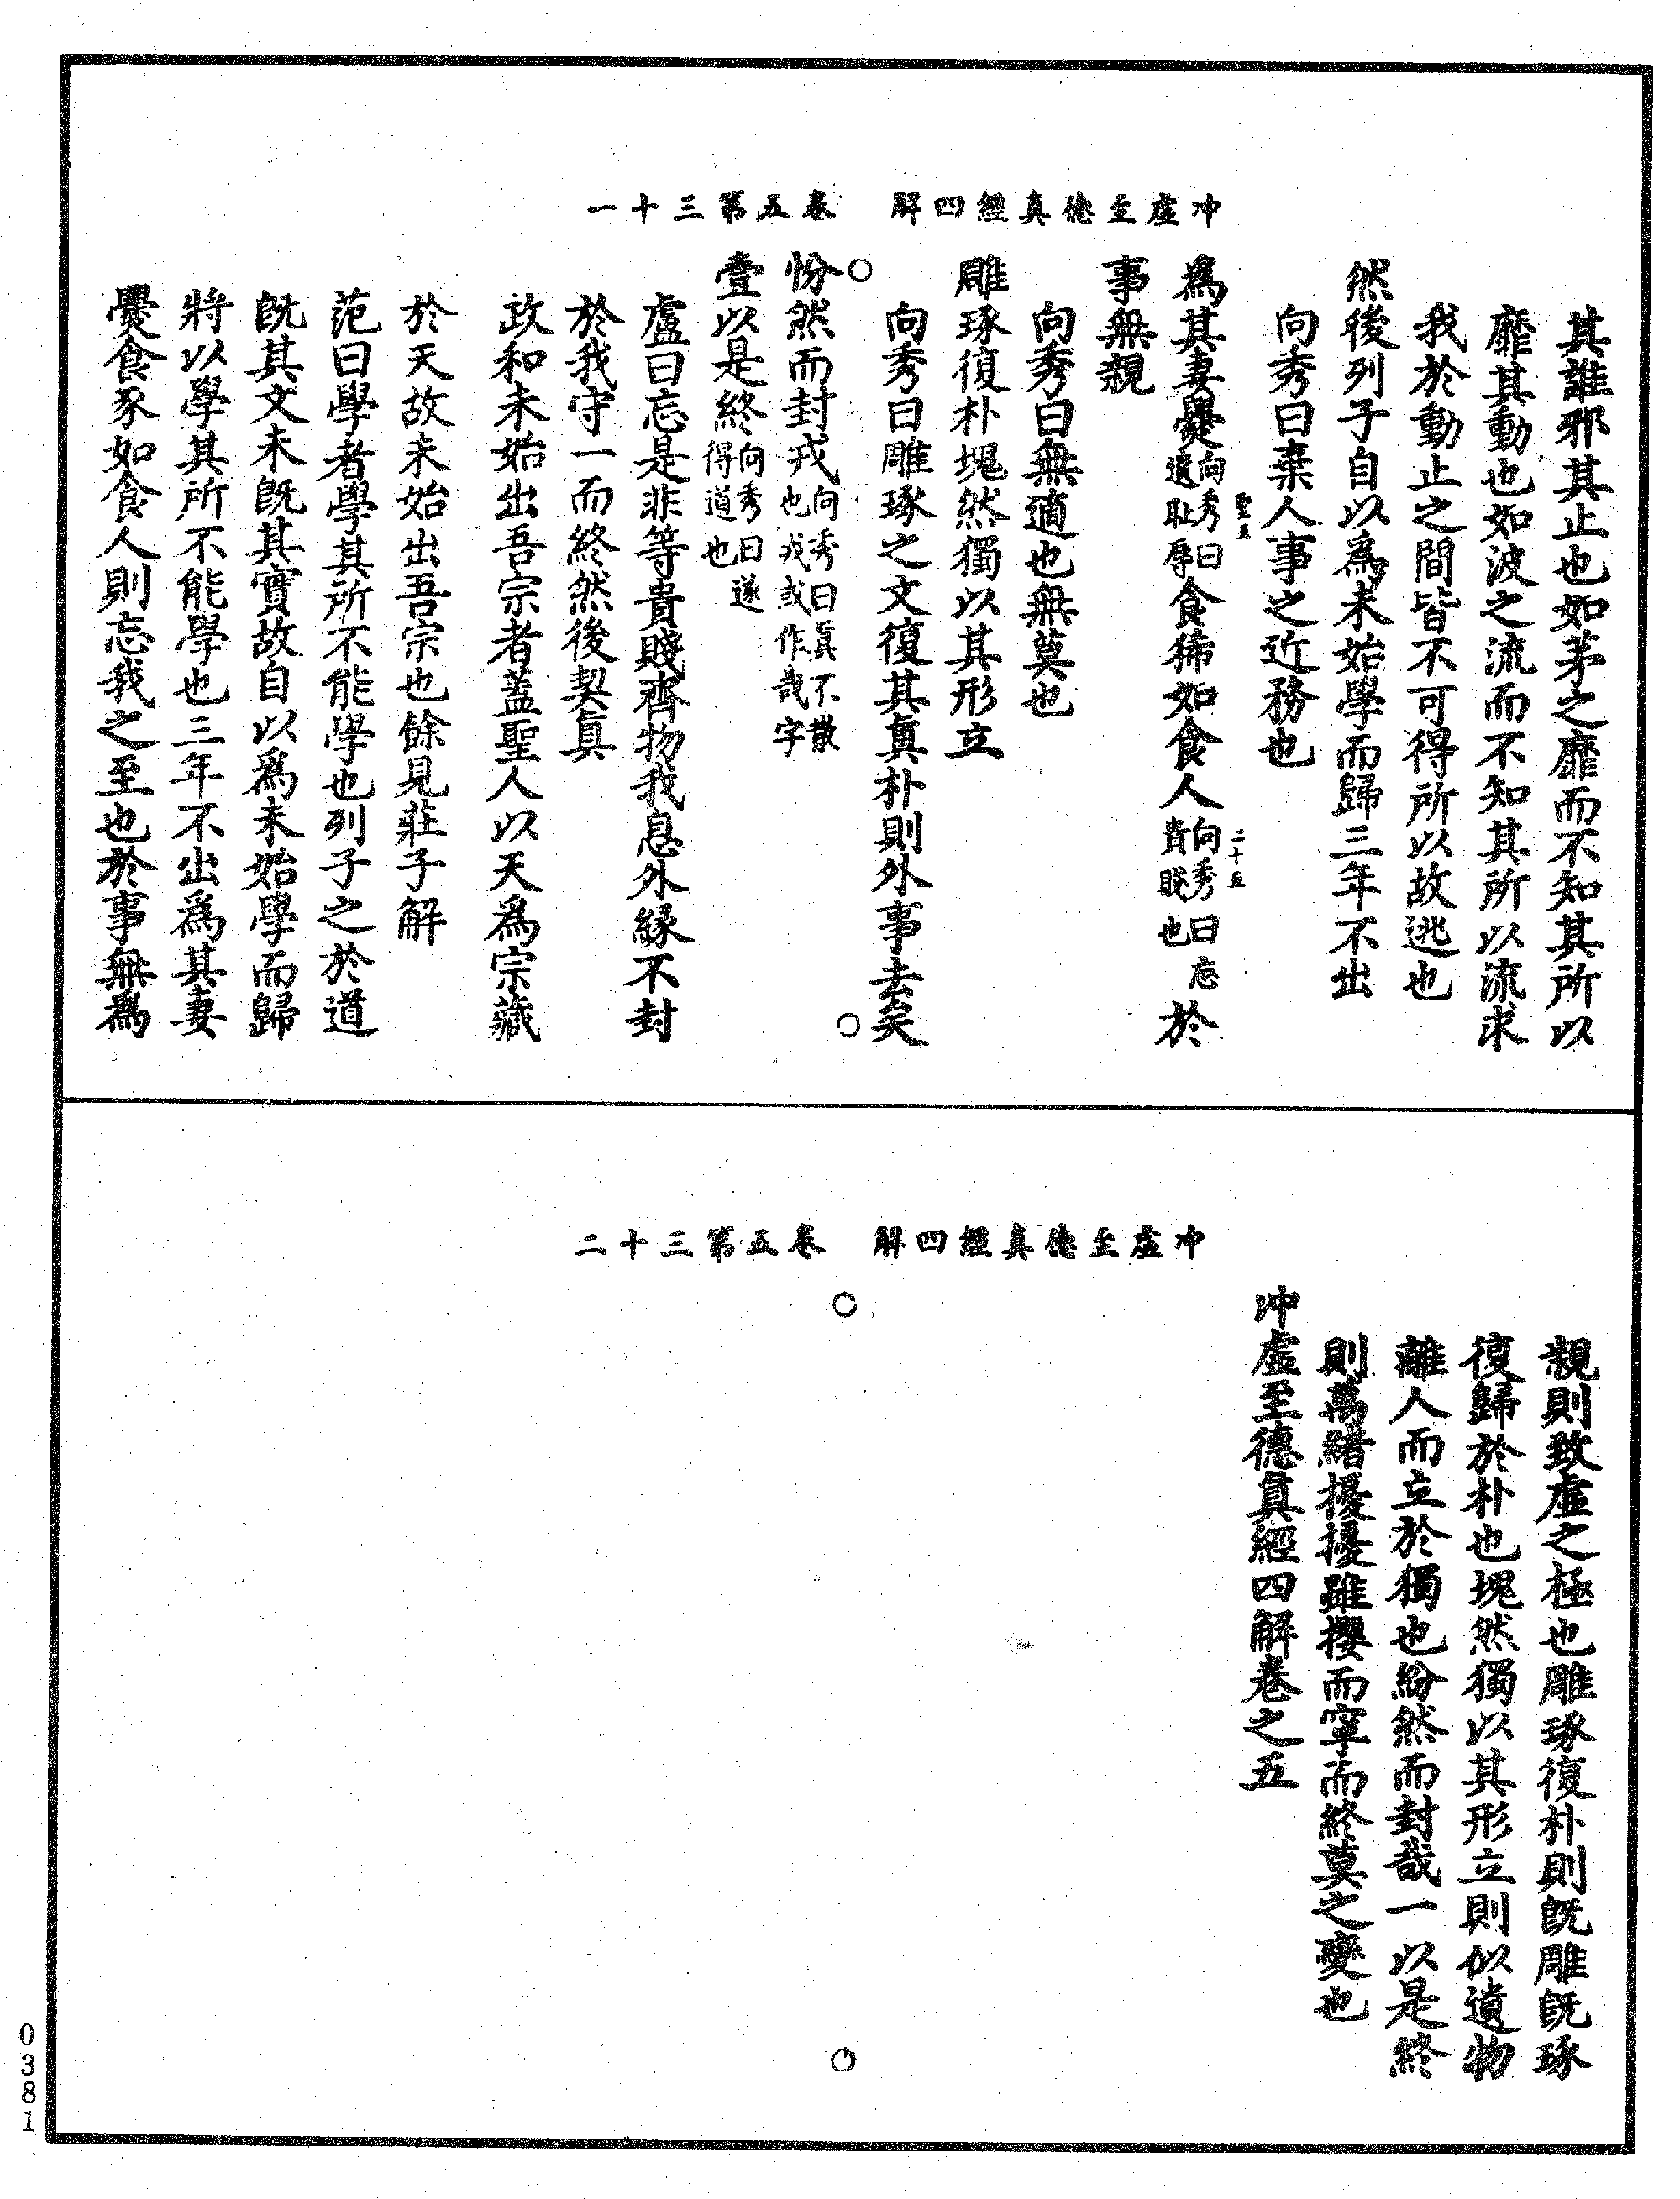 冲虛至德真經四解　卷五第三十一
其誰邪其止也如茅之靡而不知其所以
靡其動也如波之流而不知其所以流求
我於動止之間皆不可得所以故逃也
然後列子自以爲未始學而歸三年不出
向秀曰棄人事之近務也
聖五
二十五
爲其妻爨向秀曰遺恥辱食狶如食人向秀曰忘貴賤也於
事無親
向秀曰無適也無莫也
雕琢復朴塊然獨以其形立
向秀曰雕琢之文復其真朴則外事去矣
㤋然而封戎向秀曰真不散也戎或作哉字
壹以是終向秀曰遂得道也
盧曰忘是非等貴賤齊物我息外緣不封
於我守一而終然後契真
政和未始出吾宗者蓋聖人以天爲宗藏
於天故未始出吾宗也餘見莊子解
范曰學者學其所不能學也列子之於道
既其文未既其實故自以爲未始學而歸
將以學其所不能學也三年不出爲其妻
爨食豕如食人則忘我之至也於事無爲
冲虛至德真經四解　卷五第三十二
親則致虛之極也雕琢復朴則既雕既琢
復歸於朴也塊然獨以其形立則似遺物
離人而立於獨也紛然而封哉一以是終
則萬緒擾擾雖攖而寧而終莫之變也
冲虛至德真經四解卷之五
0381